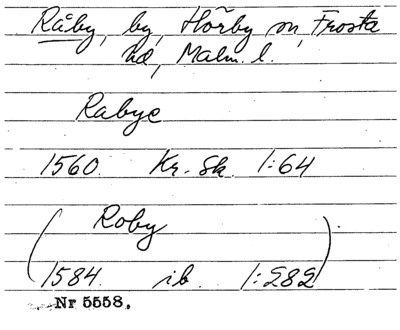 Råby, by, Hörby sn, Frosta
hd, Malm. l.
Rabye
1560. Kr. Sk. 1:64
(Roby
1584. ib. 1:282)
Nr 5558.